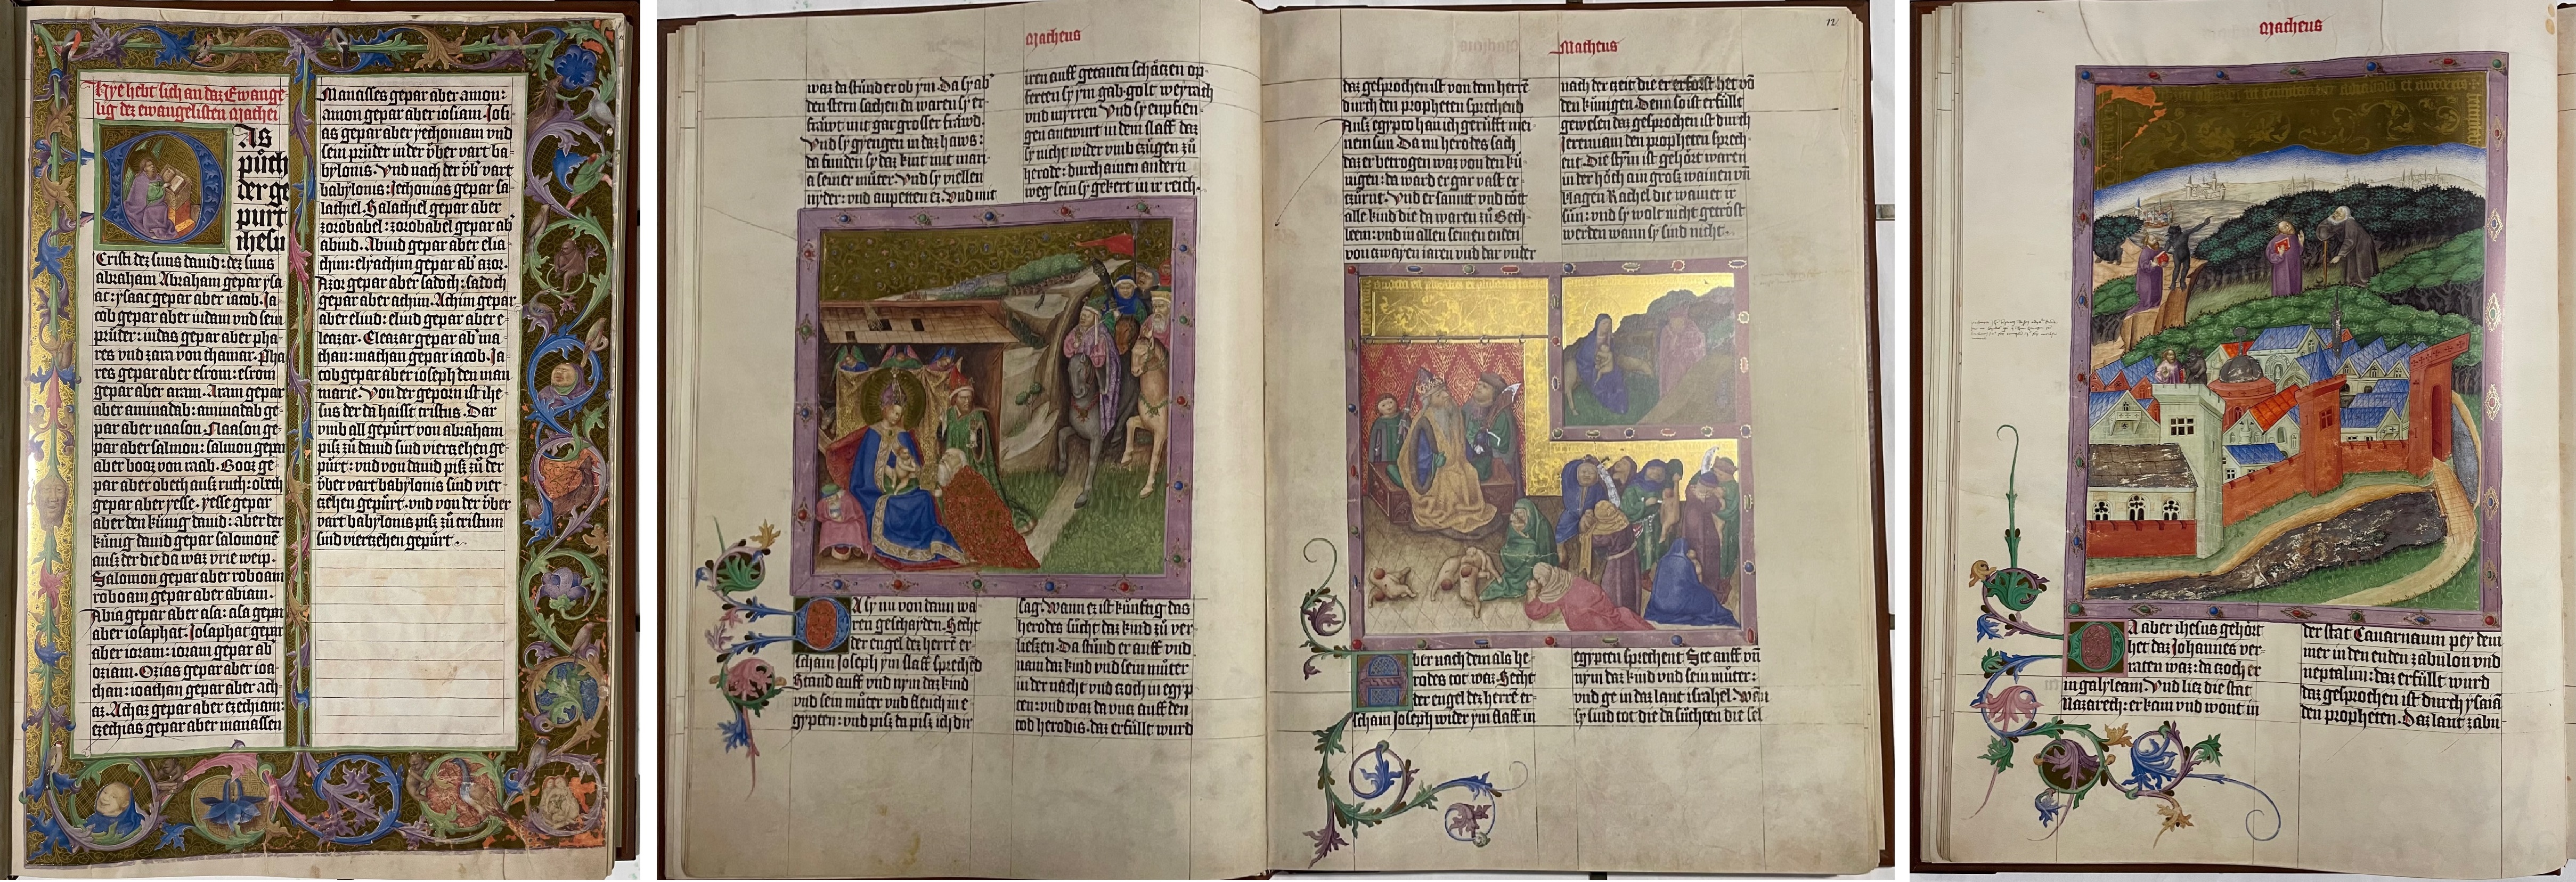 Hye hebt sich an daz Ewange-
lig dez ewangelisten Mathei
DAs
půch
der ge
purt
ihesu
Cristi dez suns dauid: dez suns
abraham Abraham gepar ysa
ac: ysaac gepar aber iacob. Ja-
cob gepar aber iudam vnd sein
prüder: iudas gepar aber pha-
res vnd zara von thamar. Pha
res gepar aber esrom: esrom
gepar aber aram. Aram gepar
aber aminadab: aminadab ge-
par aber naason. Naason ge-
par aber salmon: salmon gepar
aber booz von raab. Booz ge-
par aber obeth ausz ruth: obeth
gepar aber yesse. yesse gepar
aber den künig dauid: aber der
künig dauid gepar salomonē
ausz der die da waz vrie weip.
Salomon gepar aber roboam
roboam gepar aber abiam.
Abia gepar aber asa: asa gepar
aber iosaphat. Josaphat gepar
aber ioram: ioram gepar ab
oziam. Ozias gepar aber ioa-
than: ioathan gepar aber ach-
az. Achaz gepar aber ezechiam:
ezechias gepar aber manassen
Manasses gepar aber amon:
amon gepar aber iosiam. Josi-
as gepar aber yechoniam vnd
sein prüder in der über vart ba-
bylonis. Vnd nach der üb vart
babylonis: Jechonias gepar sa-
lathiel. Salathiel gepar aber
zorobabel: zorobabel gepar ab
abiud. Abiud gepar aber elia-
chim: elyachim gepar ab azor.
Azor gepar aber sadoch: sadoch
gepar aber achim. Achim gepar
aber eliud: eliud gepar aber e-
leazar. Eleazar gepar ab ma-
than: mathan gepar iacob. Ja-
cob gepar aber ioseph den man
marie. Von der geporn ist ihe-
sus der da haisst cristus. Dar
vmb all gepürt von abraham
pisz zů dauid sind vierzehen ge-
pürt: vnd von dauid pisz zů der
über vart babylonis sind vier-
zehen gepürt. vnd von der über
vart babylonis pisz zů cristum
sind vierzehen gepürt.
Matheus
waz da stůnd er ob ym. Da sy ab
den stern sachen da waren sy er-
fräwt mit gar grosser fräwd.
Vnd sy gyengen in daz haws:
da funden sy daz kint mit mari-
a seiner můter: Vnd sy viellen
nyder: vnd anpetten ez. Vnd mit
iren auff getanen schätzen op-
ferten sy ym gab. golt weyrach
vnd myrren. Vnd sy empfien-
gen antwurt in dem slaff daz
sy nicht wider vmb czügen zů
herode: durch ainen andern
weg sein sy gekert in ir reich.
DA sy nu von dann wa-
ren geschayden. Secht
der engel dez herrē er-
schain Joseph ym slaff sprechēd
Stand auff vnd nym daz kind
vnd sein můter vnd fleuch in e-
gypten: vnd pisz da pisz ich dir
sag. Wann ez ist künftig das
herodes sůcht daz kind zů ver-
liesen. Da stůnd er auff vnd
nam daz kind vnd sein můter
in der nacht vnd zoch in egyp-
ten: vnd waz da vncz auff den
tod herodis. daz erfüllt wurd
Matheus
12
daz gesprochen ist von dem herrē
durch den propheten sprechend
Ausz egypto han ich gerüfft mei-
nem sun. Da nu herodes sach
daz er betrogen waz von den kü-
nigen: da ward er gar vast er-
zürnt. Vnd er sannt vnd tött
alle kind die da waren zů Beth-
leem: vnd in allen seinen enden
von zwayen iaren vnd dar vnder
nach der zeit die er erforst het vō
den künigen. Denn so ist erfüllt
gewesen daz gesprochen ist durch
Jeremiam den propheten sprech-
ent. Die stȳm ist gehört waren
in der höch ain grosz wainen vn̄
klagen Rachel die wainet ir
sün: vnd sy wolt nicht getröst
werden wann sy sind nicht.
Aber nach dem als he-
rodes tot waz. Secht
der engel dez herrē er-
schain Joseph wider ym slaff in
egypten sprechent. Stee auff vn̄
nym daz kind vnd sein můter:
vnd ge in daz lant israhel. wan
sy sind tot die da sůchten die sel
Matheus
DA aber ihesus gehört
het daz Johannes ver-
raten waz: da zoch er
in galyleam. Vnd liez die stat
Nazareth: er kam vnd wont in
der stat Cauarnaum pey dem
mer in den enden zabulon vnd
neptalim: daz erfüllt wurd
daz gesprochen ist durch ysaiā
den propheten. Daz lant zabu-